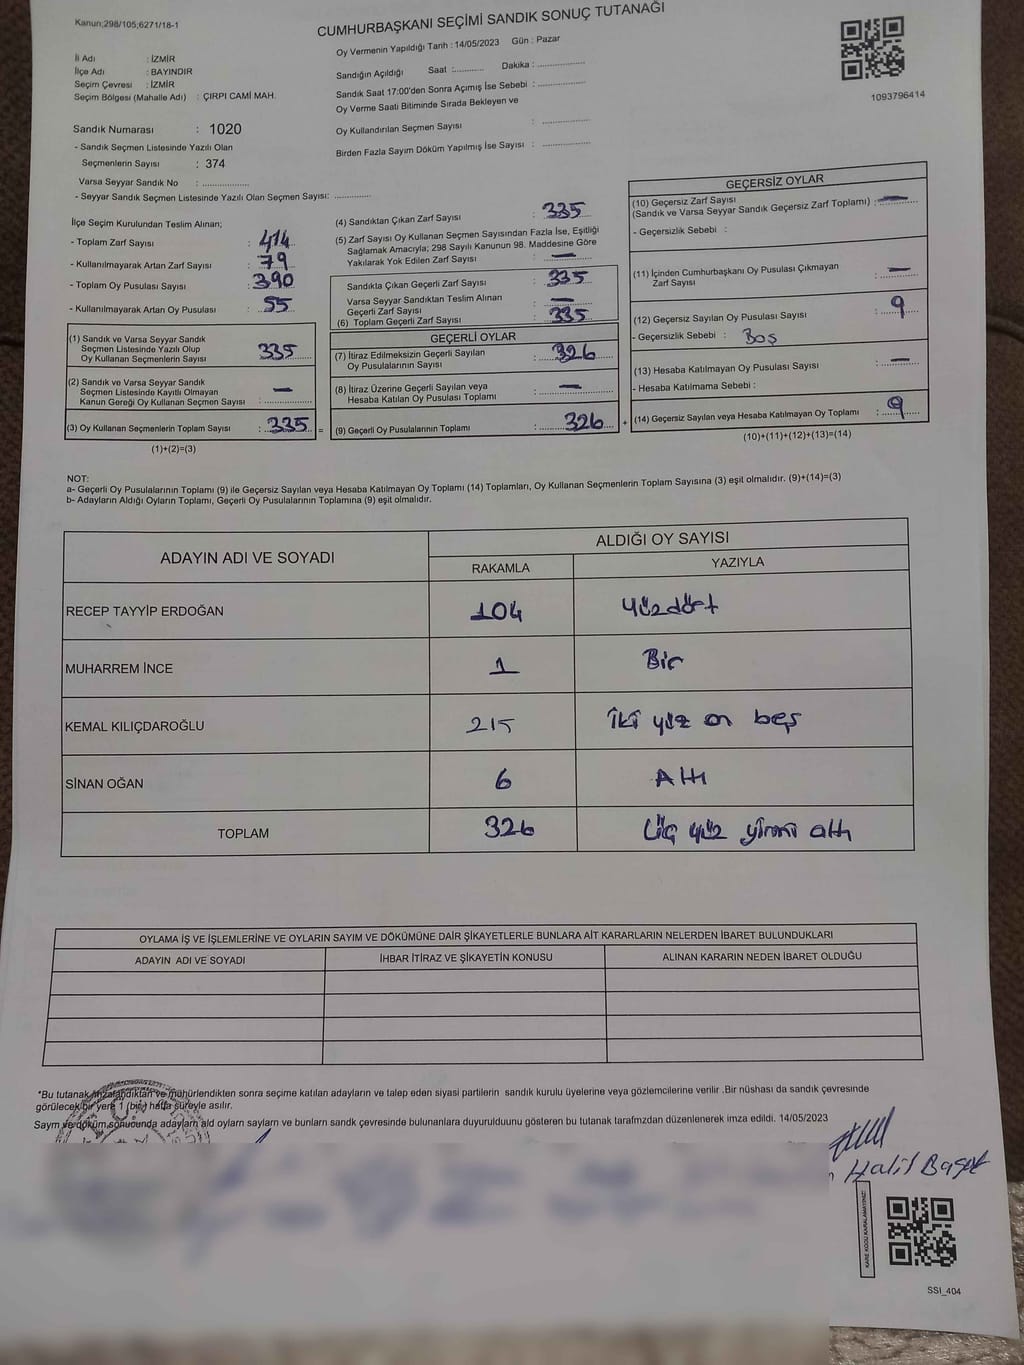 Kanun;298/105;6271/18-1
CUMHURBAŞKANI SEÇİMİ SANDIK SONUÇ TUTANAĞI
Oy Vermenin Yapıldığı Tarih : 14/05/2023 Gün : Pazar
İl Adı : İZMİR
İlçe Adı : BAYINDIR
Seçim Çevresi : İZMİR
Seçim Bölgesi (Mahalle Adı) : ÇIRPI CAMİ MAH.
Sandığın Açıldığı Saat :........... Dakika : ................
Sandık Saat 17:00'den Sonra Açımış İse Sebebi : ................
Oy Verme Saati Bitiminde Sırada Bekleyen ve
Oy Kullandırılan Seçmen Sayısı : ................
Birden Fazla Sayım Döküm Yapılmış İse Sayısı : ................
1093796414
Sandık Numarası : 1020
- Sandık Seçmen Listesinde Yazılı Olan
Seçmenlerin Sayısı : 374
Varsa Seyyar Sandık No : ................
- Seyyar Sandık Seçmen Listesinde Yazılı Olan Seçmen Sayısı: ............
İlçe Seçim Kurulundan Teslim Alınan;
- Toplam Zarf Sayısı : 414
- Kullanılmayarak Artan Zarf Sayısı : 79
- Toplam Oy Pusulası Sayısı : 390
- Kullanılmayarak Artan Oy Pusulası : 55
(1) Sandık ve Varsa Seyyar Sandık
Seçmen Listesinde Yazılı Olup
Oy Kullanan Seçmenlerin Sayısı : 335
(2) Sandık ve Varsa Seyyar Sandık
Seçmen Listesinde Kayıtlı Olmayan
Kanun Gereği Oy Kullanan Seçmen Sayısı : —
(3) Oy Kullanan Seçmenlerin Toplam Sayısı : 335 =
(1)+(2)=(3)
(4) Sandıktan Çıkan Zarf Sayısı : 335
(5) Zarf Sayısı Oy Kullanan Seçmen Sayısından Fazla İse, Eşitliği
Sağlamak Amacıyla; 298 Sayılı Kanunun 98. Maddesine Göre
Yakılarak Yok Edilen Zarf Sayısı : —
Sandıkla Çıkan Geçerli Zarf Sayısı : 335
Varsa Seyyar Sandıktan Teslim Alınan
Geçerli Zarf Sayısı : —
(6) Toplam Geçerli Zarf Sayısı : 335
GEÇERLİ OYLAR
(7) İtiraz Edilmeksizin Geçerli Sayılan
Oy Pusulasının Sayısı : 326
(8) İtiraz Üzerine Geçerli Sayılan veya
Hesaba Katılan Oy Pusulası Toplamı : —
(9) Geçerli Oy Pusulalarının Toplamı : 326 +
GEÇERSİZ OYLAR
(10) Geçersiz Zarf Sayısı
(Sandık ve Varsa Seyyar Sandık Geçersiz Zarf Toplamı) : —
- Geçersizlik Sebebi :
(11) İçinden Cumhurbaşkanı Oy Pusulası Çıkmayan
Zarf Sayısı : —
(12) Geçersiz Sayılan Oy Pusulası Sayısı : 9
- Geçersizlik Sebebi : Boş
(13) Hesaba Katılmayan Oy Pusulası Sayısı : —
- Hesaba Katılmama Sebebi :
(14) Geçersiz Sayılan veya Hesaba Katılmayan Oy Toplamı : 9
(10)+(11)+(12)+(13)=(14)
NOT:
a- Geçerli Oy Pusulalarının Toplamı (9) ile Geçersiz Sayılan veya Hesaba Katılmayan Oy Toplamı (14) Toplamları, Oy Kullanan Seçmenlerin Toplam Sayısına (3) eşit olmalıdır. (9)+(14)=(3)
b- Adayların Aldığı Oyların Toplamı, Geçerli Oy Pusulalarının Toplamına (9) eşit olmalıdır.
ADAYIN ADI VE SOYADI ALDIĞI OY SAYISI
RAKAMLA YAZIYLA
RECEP TAYYİP ERDOĞAN 104 Yüzdört
MUHARREM İNCE 1 Bir
KEMAL KILIÇDAROĞLU 215 İki yüz on beş
SİNAN OĞAN 6 Altı
TOPLAM 326 Üç yüz yirmi altı
OYLAMA İŞ VE İŞLEMLERİNE VE OYLARIN SAYIM VE DÖKÜMÜNE DAİR ŞİKAYETLERLE BUNLARA AİT KARARLARIN NELERDEN İBARET BULUNDUKLARI
ADAYIN ADI VE SOYADI İHBAR İTİRAZ VE ŞİKAYETİN KONUSU ALINAN KARARIN NEDEN İBARET OLDUĞU
*Bu tutanak imzalandıktan ve mühürlendikten sonra seçime katılan adayların ve talep eden siyasi partilerin sandık kurulu üyelerine veya gözlemcilerine verilir .Bir nüshası da sandık çevresinde
görülecek bir yere 1 (bir) hafta süreyle asılır.
Sayım ve döküm sonucunda adayların ald oyların sayların ve bunların sandk çevresinde bulunanlara duyurulduunu gösteren bu tutanak tarafmzdan düzenlenerek imza edildi. 14/05/2023
Halil
KARE KODU KARALAMAYINIZ!
SSI_404